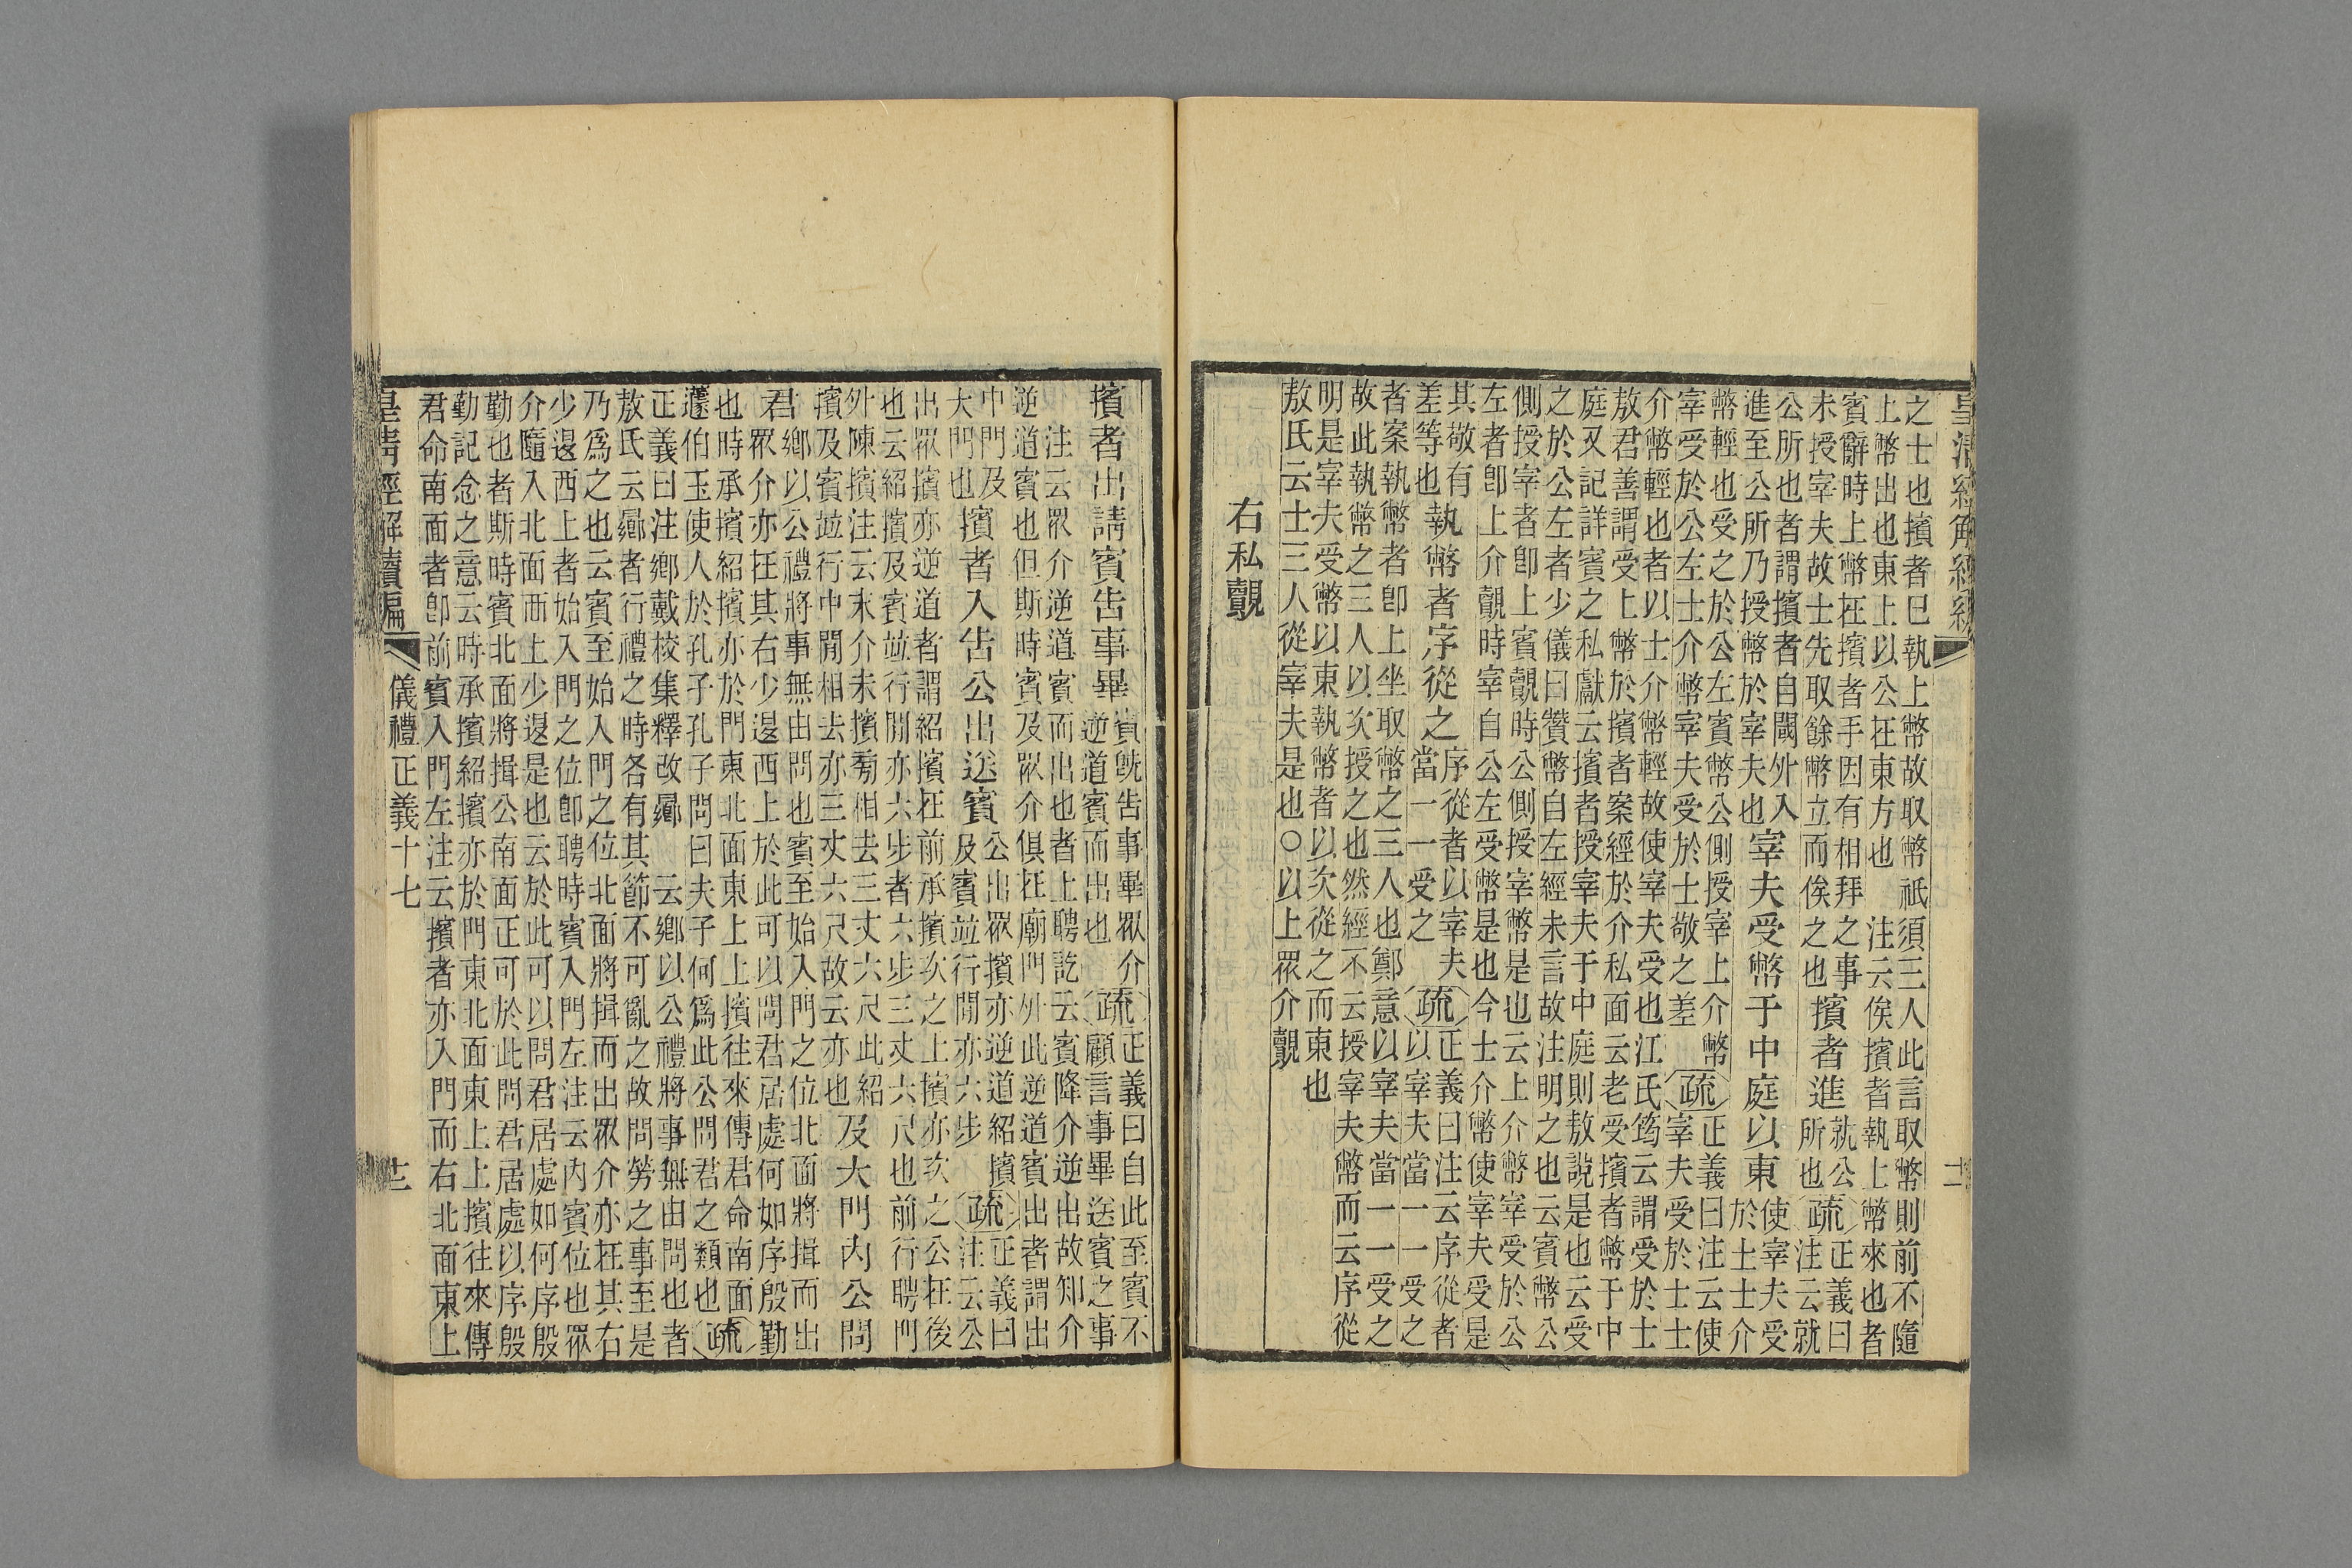 皇清經解續編
十一
之士也擯者已執上幣故取幣祇須三人此言取幣則前不隨
上幣出也東上以公在東方也　注云俟擯者執上幣來也者
賓辭時上幣在擯者手因有相拜之事
未授宰夫故士先取餘幣立而俟之也
擯者進
就公
所也
疏
正義曰
注云就
公所也者謂擯者自闑外入
進至公所乃授幣於宰夫也
宰夫受幣于中庭以東
使宰夫受
於士士介
幣輕也受之於公左賓幣公側授宰上介幣
宰受於公左士介幣宰夫受於士敬之差
疏
正義曰注云使
宰夫受於士士
介幣輕也者以士介幣輕故使宰夫受也江氏筠云謂受於士
敖君善謂受上幣於擯者案經於介私面云老受擯者幣于中
庭又記詳賓之私獻云擯者授宰夫于中庭則敖說是也云受
之於公左者少儀曰贊幣自左經未言故注明之也云賓幣公
側授宰者卽上賓覿時公側授宰幣是也云上介幣宰受於公
左者卽上介覿時宰自公左受幣是也今士介幣使宰夫受是
其敬有
差等也
執幣者序從之
序從者以宰夫
當一一受之
疏
正義曰注云序從者
以宰夫當一一受之
者案執幣者卽上坐取幣之三人也鄭意以宰夫當一一受之
故此執幣之三人以次授之也然經不云授宰夫幣而云序從
明是宰夫受幣以東執幣者以次從之而東也
敖氏云士三人從宰夫是也○以上眾介覿
右私覿
擯者出請賓告事畢
賓旣告事畢眾介
逆道賓而出也
疏
正義曰自此至賓不
顧言事畢送賓之事
注云眾介逆道賓而出也者上聘訖云賓降介逆出故知介
逆道賓也但斯時賓及眾介俱在廟門外此逆道賓出者謂出
中門及
大門也
擯者入告公出送賓
公出眾擯亦逆道紹擯
及賓並行閒亦六步
疏
正義曰
注云公
出眾擯亦逆道者謂紹擯在前承擯次之上擯亦次之公在後
也云紹擯及賓並行閒亦六步者六步三丈六尺也前行聘門
外陳擯注云末介末擯旁相去三丈六尺此紹
擯及賓並行中閒相去亦三丈六尺故云亦也
及大門內公問
君
鄉以公禮將事無由問也賓至始入門之位北面將揖而出
眾介亦在其右少退西上於此可以問君居處何如序殷勤
也時承擯紹擯亦於門東北面東上上擯往來傳君命南面
蘧伯玉使人於孔子孔子問曰夫子何爲此公問君之類也
疏
正義曰注鄉戴校集釋改曏　云鄉以公禮將事無由問也者
敖氏云曏者行禮之時各有其節不可亂之故問勞之事至是
乃爲之也云賓至始入門之位北面將揖而出眾介亦在其右
少退西上者始入門之位卽聘時賓入門左注云內賓位也眾
介隨入北面西上少退是也云於此可以問君居處如何序殷
勤也者斯時賓北面將揖公南面正可於此問君居處以序殷
勤記念之意云時承擯紹擯亦於門東北面東上上擯往來傳
君命南面者卽前賓入門左注云擯者亦入門而右北面東上
皇清經解續編
儀禮正義十七
十二